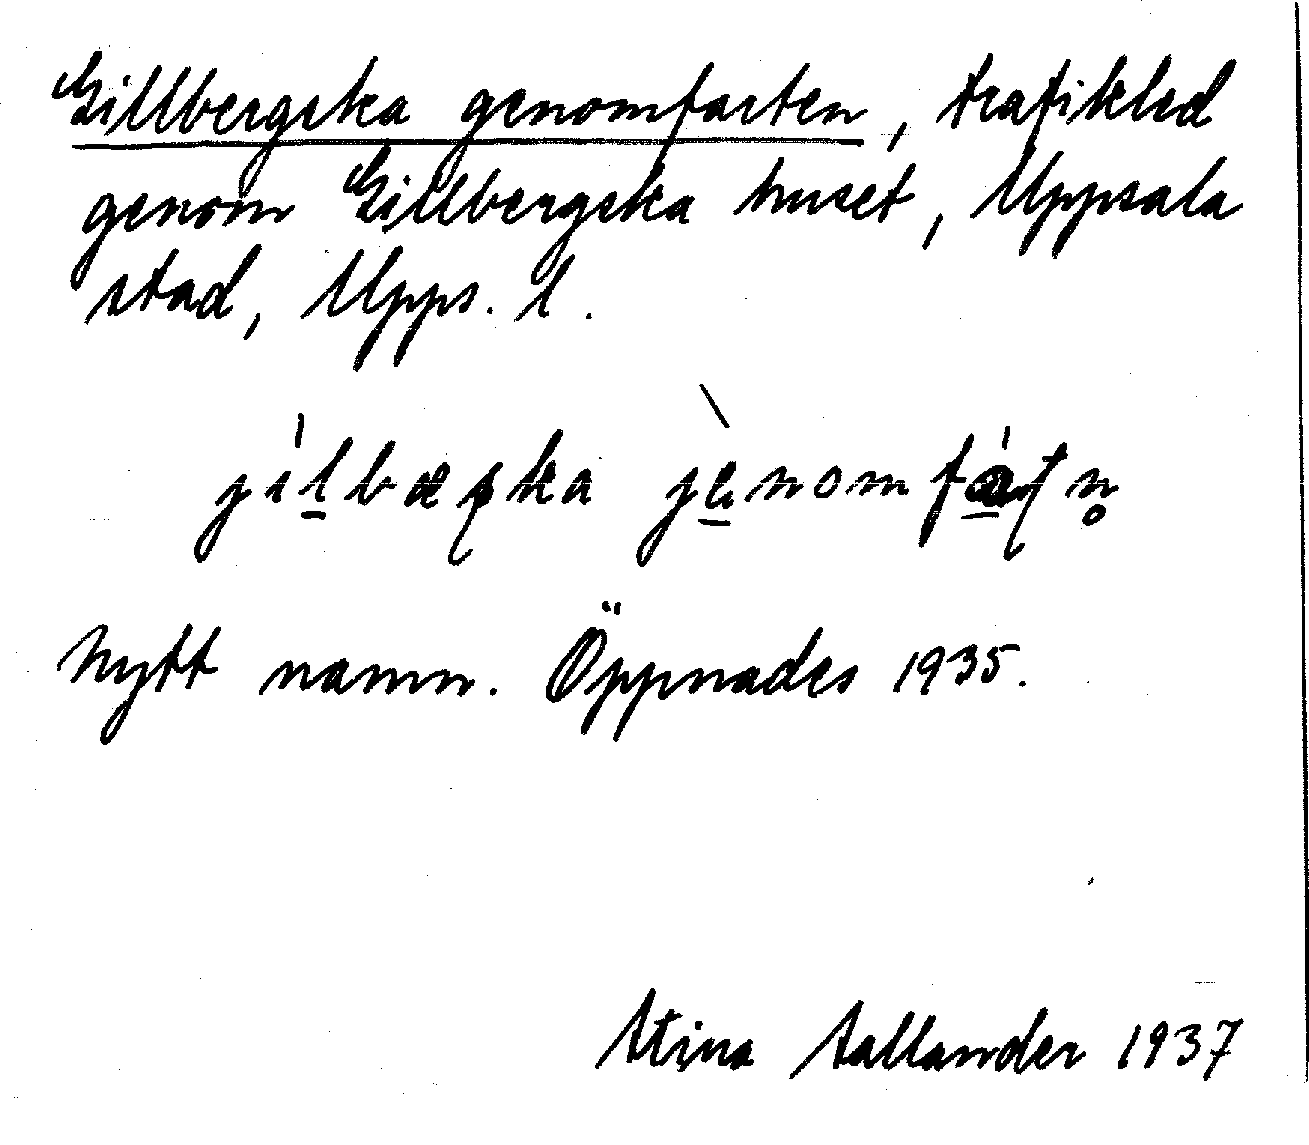 Gillbergska genomfarten, trafikled
genom Gillbergska huset, Uppsala
stad, Upps. l.
jílbæʂka jènomfáʈn̥
Nytt namn. Öppnades 1935.
Stina Sallander 1937